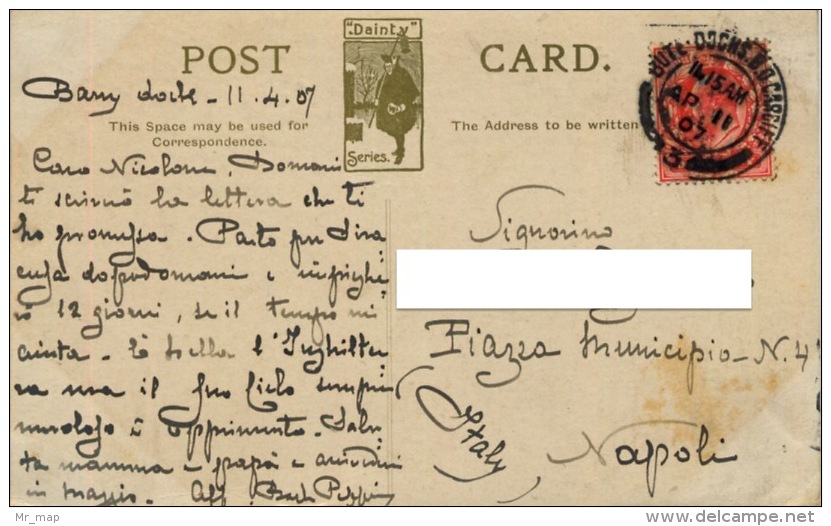 POST "Dainty" CARD.
Series.
This Space may be used for
Correspondence.
The Address to be written
BUTE DOCKS B.O. CARDIFF
11.15 AM
AP 11
07
3
Barry dock - 11.4.07
Caro Nicolone, Domani
ti scriverò la lettera che ti
ho promessa. Parto per Sira
cusa dopodomani e impieghe
rò 12 giorni, se il tempo mi
aiuta. È bella l'Inghilter
ra ma il suo cielo sempre
nuvoloso è opprimente. Salu
ta mamma e papà e
in maggio. Aff.
Signorino
Piazza Municipio - N. 4
Napoli
(Italy)
Mr_map
delcampe.net